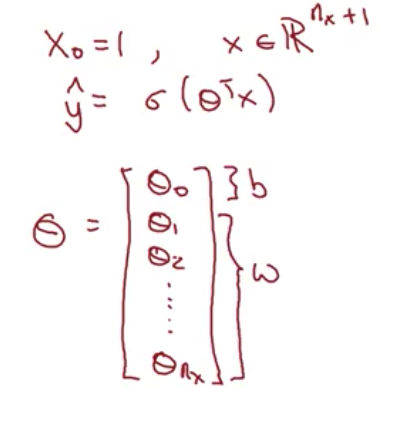 x₀ = 1 , x ∈ ℝⁿˣ⁺¹
ŷ = σ (θᵀx)
θ = [θ₀ θ₁ θ₂ ⋮ θₙₓ] } b } w